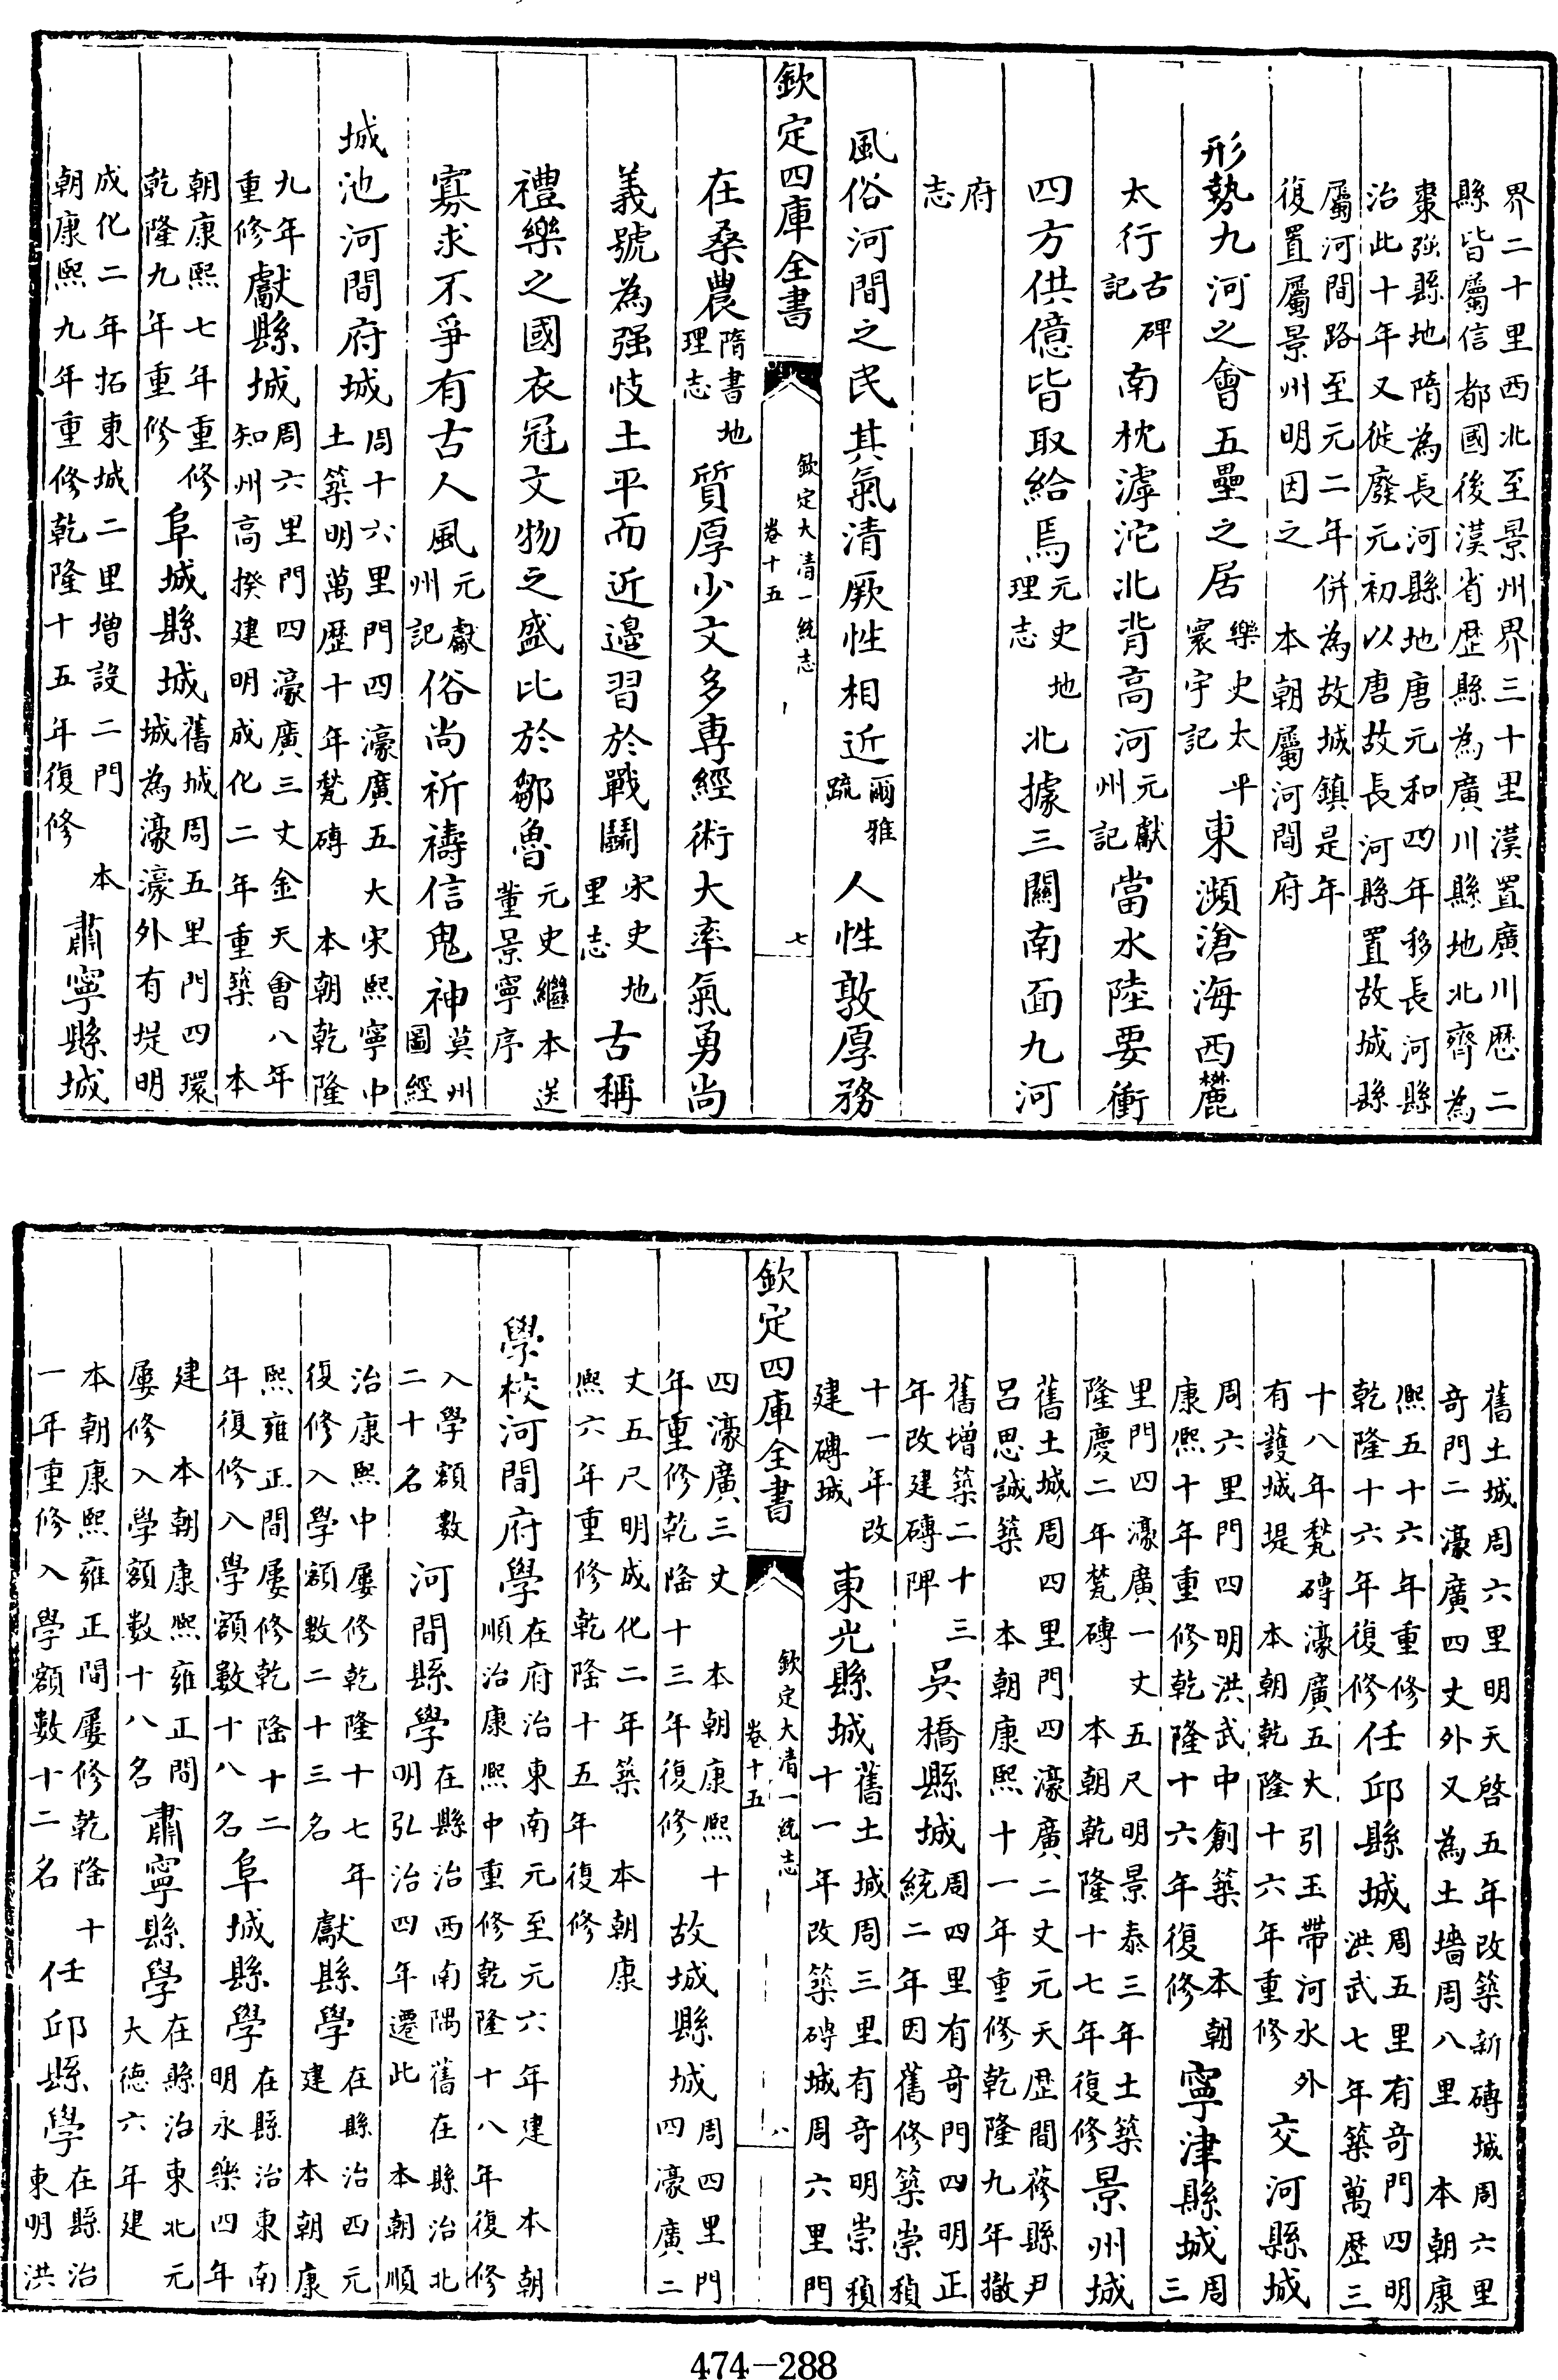 界二十里西北至景州界三十里漢置廣川歷二
縣皆屬信都國後漢省歷縣為廣川縣地北齊為
棗强縣地隋為長河縣地唐元和四年移長河縣
治此十年又徙廢元初以唐故長河縣置故城縣
屬河間路至元二年併為故城鎮是年
復置屬景州明因之 本朝屬河間府
形勢九河之會五壘之居 樂史太平寰宇記 東瀕滄海西麓
太行 古碑記 南枕滹沱北背高河 元獻州記 當水陸要衝
四方供億皆取給焉 元史地理志 北據三關南面九河
府志
風俗河間之民其氣清厥性相近 爾雅疏 人性敦厚務
欽定四庫全書 欽定大清一統志 卷十五 七
在桑農 隋書地理志 質厚少文多專經術大率氣勇尚
義號為强忮土平而近邊習於戰鬭 宋史地里志 古稱
禮樂之國衣冠文物之盛比於鄒魯 元史繼本送董景寧序
寡求不爭有古人風 元獻州記 俗尚祈禱信鬼神 莫州圖經
城池河間府城 周十六里門四濠廣五大宋熙寧中土築明萬歷十年甃磚 本朝乾隆
九年重修 獻縣城 周六里門四濠廣三丈金天會八年知州高揆建明成化二年重築 本
朝康熙七年重修乾隆九年重修 阜城縣城 舊城周五里門四環城為濠濠外有堤明
成化二年拓東城二里增設二門 本朝康熙九年重修乾隆十五年復修 肅寧縣城
舊土城周六里明天啓五年改築新磚城周六里
奇門二濠廣四丈外又為土墻周八里 本朝康
熙五十六年重修乾隆十六年復修 任邱縣城 周五里有奇門四明洪武七年築萬歷三
十八年甃磚濠廣五大引玉帶河水外有護城堤 本朝乾隆十六年重修 交河縣城
周六里門四明洪武中創築 本朝康熙十年重修乾隆十六年復修 寧津縣城 周三
里門四濠廣一丈五尺明景泰三年土築隆慶二年甃磚 本朝乾隆十七年復修 景州城
舊土城周四里門四濠廣二丈元天歷間蓚縣尹
呂思誠築 本朝康熙十一年重修乾隆九年撤
舊增築二十三年改建磚陴 吳橋縣城 周四里有奇門四明正統二年因舊修築崇禎
十一年改建磚城 東光縣城 舊土城周三里有奇明崇禎十一年改築磚城周六里門
欽定四庫全書 欽定大清一統志 卷十五 八
四濠廣三丈 本朝康熙十年重修乾隆十三年復修 故城縣城 周四里門四濠廣二
丈五尺明成化二年築 本朝康
熙六年重修乾隆十五年復修
學校河間府學 在府治東南元至元六年建 本朝順治康熙中重修乾隆十八年復修
入學額數二十名 河間縣學 在縣治西南隅舊在縣治北明弘治四年遷此 本朝順
治康熙中屢修乾隆十七年復修入學額數二十三名 獻縣學 在縣治西元建 本朝康
熙雍正間屢修乾隆十二年復修入學額數十八名 阜城縣學 在縣治東南明永樂四年
建 本朝康熙雍正間屢修入學額數十八名 肅寧縣學 在縣治東北元大德六年建
本朝康熙雍正間屢修乾隆十一年重修入學額數十二名 任邱縣學 在縣治東明洪
474-288